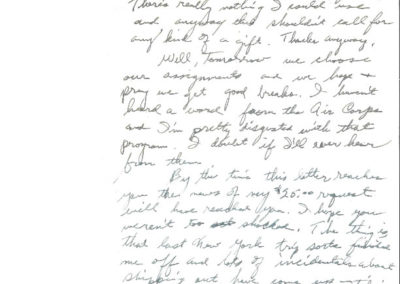 There's really nothing I could use
and anyway this shouldn't call for
any kind of a gift. Thanks anyway.
Well, tomorrow we choose
our assignments and we hope +
pray we get good breaks. I haven't
heard a word from the Air Corps
and I'm pretty disgusted with that
program. I doubt if I'll ever hear
from them.
By the time this letter reaches
you the news of my $25.00 request
will have reached you. I hope you
weren't too shocked. The thing is
that last New York trip sorta finished
me off and lots of incidentals about
shipping out have come up